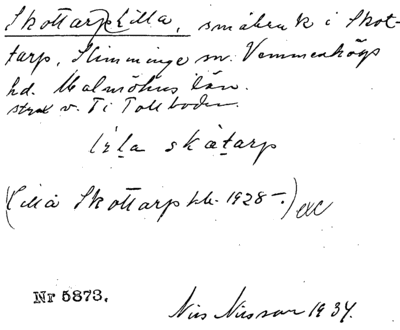 Skottarp, Lilla, småbruk i Skot-
tarp, Slimminge sn. Vemmenhögs
hd. Malmöhus län.
strax v. Ti Tollboden.
lɩ̀la skàtarp
(Lilla Skottarp hk. 1928 -.)
Nr 5873.
Nils Nilsson 1934.